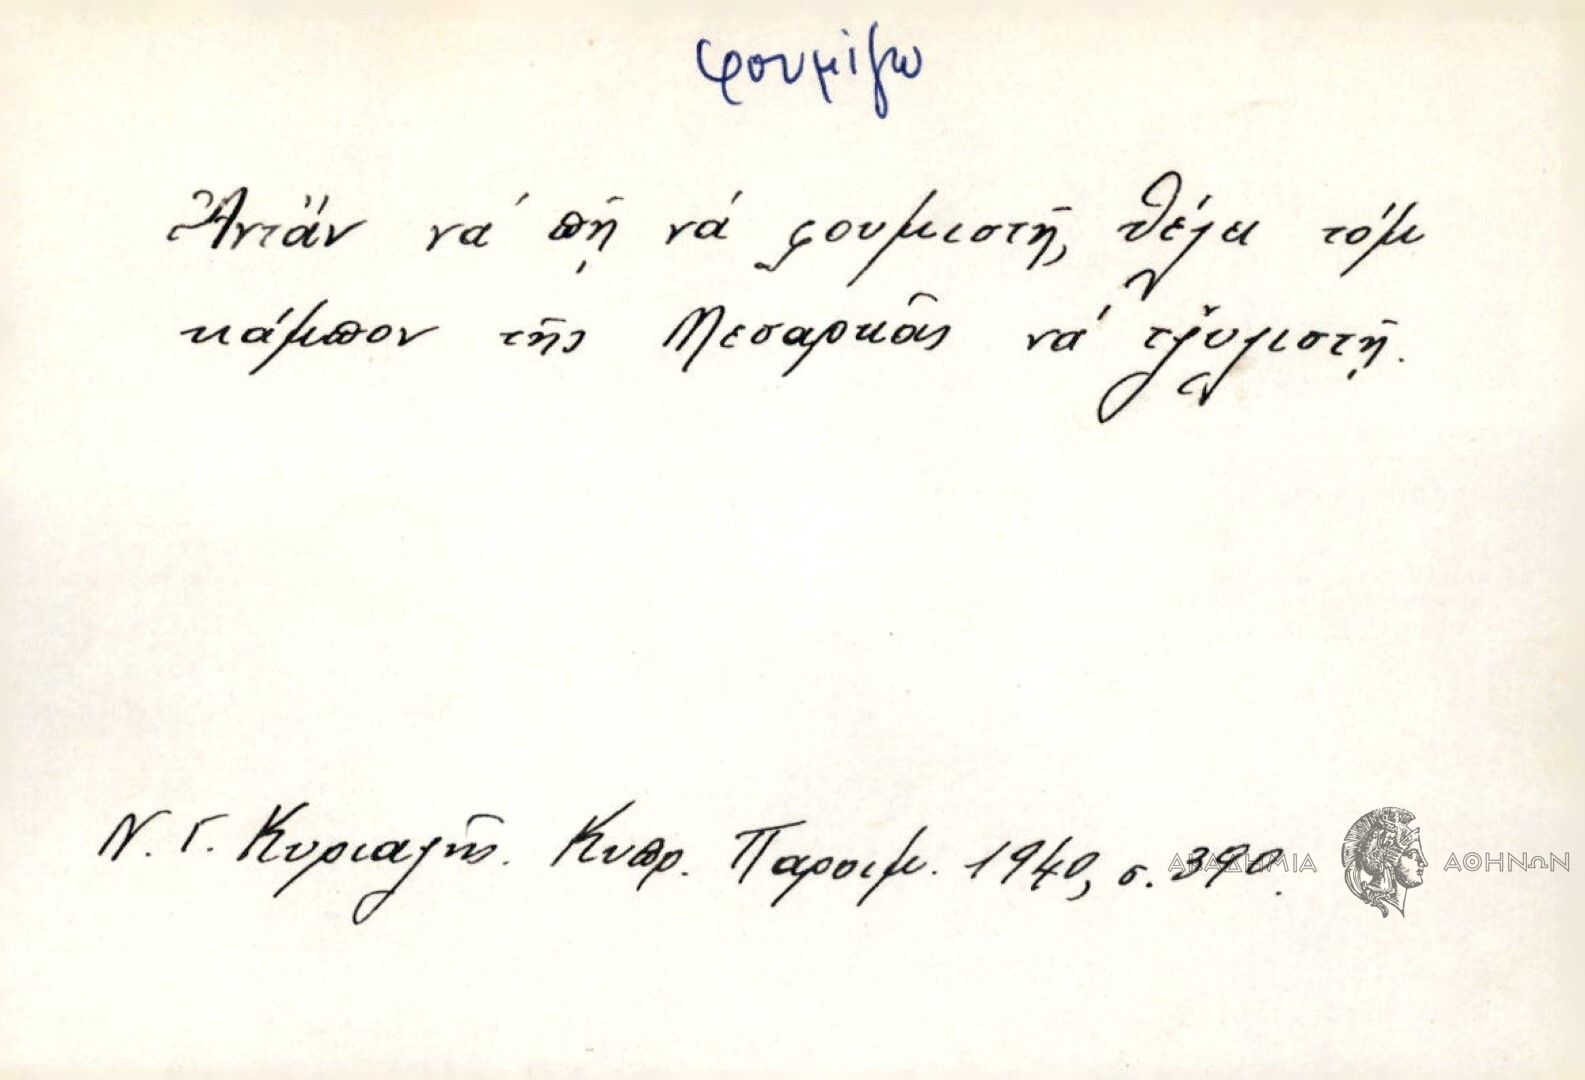 φουμίζω
Ἀντὰν νὰ πῇ νὰ φουμιστῇ, θέλει τὸμ
κάμπον τῆς Μεσαρκᾶς νὰ τζ̆υλιστῇ.
Ν. Γ. Κυριαζῆς. Κυπρ. Παροιμ. 1940, σ. 390.
ΑΚΑΔΗΜΙΑ ΑΘΗΝΩΝ